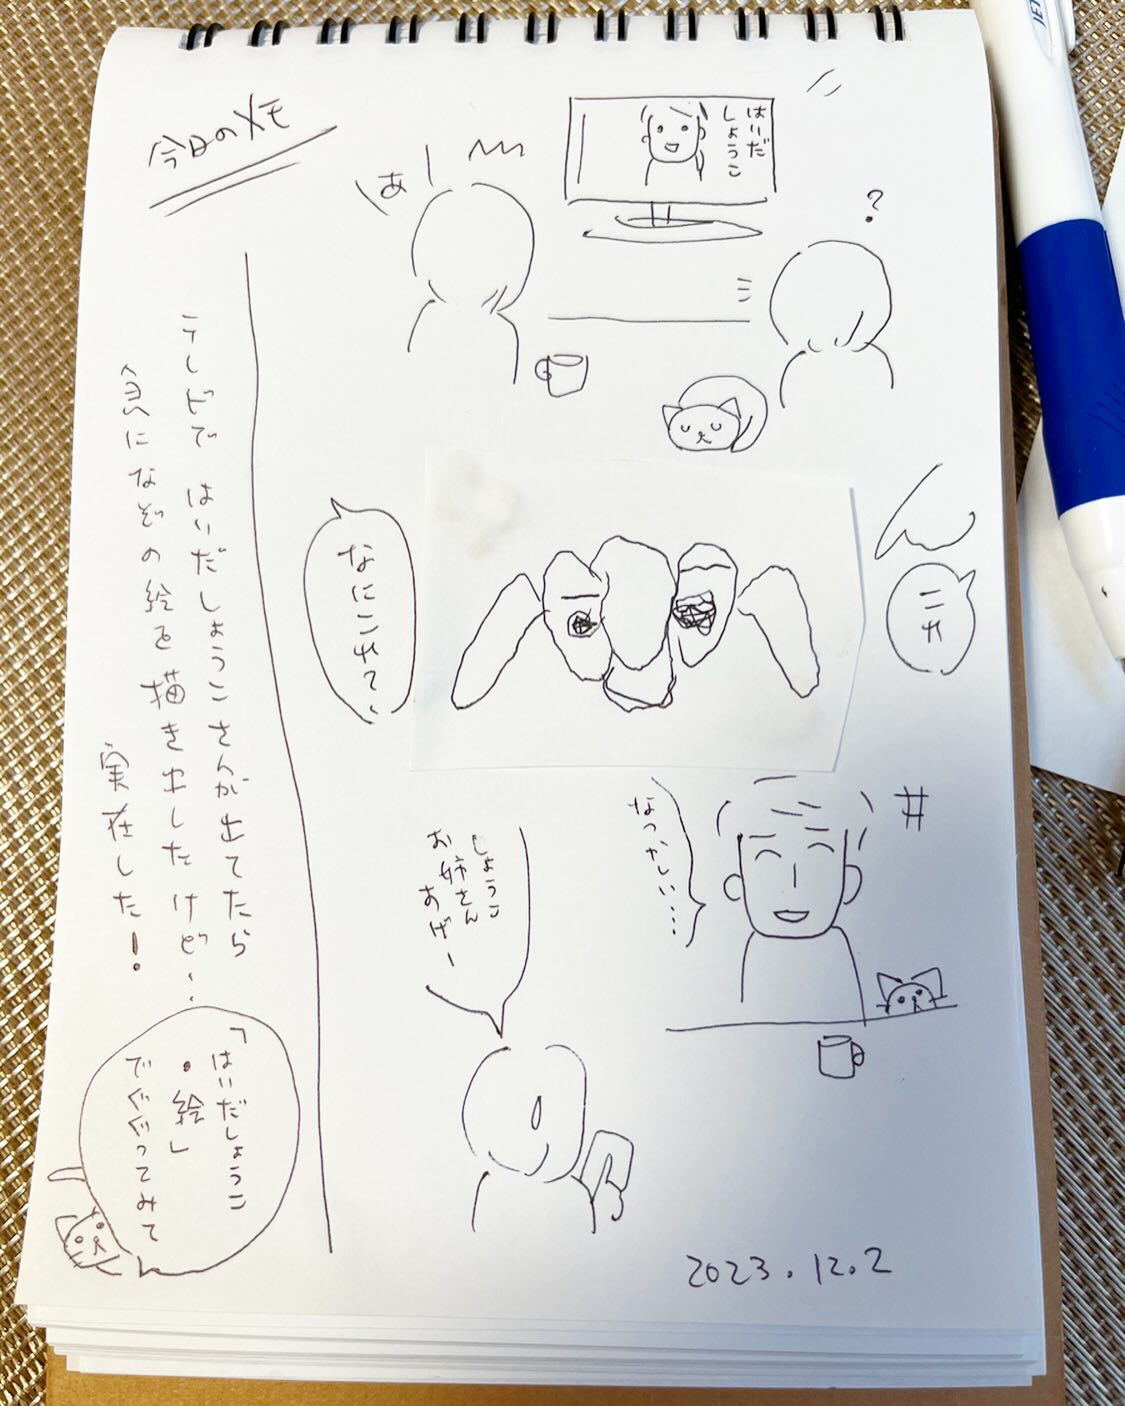 今日のメモ
はいだ
しょうこ
あ
?
コレ
なにこれ?
なつかしい…
しょうこ
お姉さん
あげー
テレビで はいだしょうこさんが出てたら
急になぞの絵を描き出したけど…
実在した!
「はいだしょうこ
・絵」
でぐぐってみて
2023.12.2